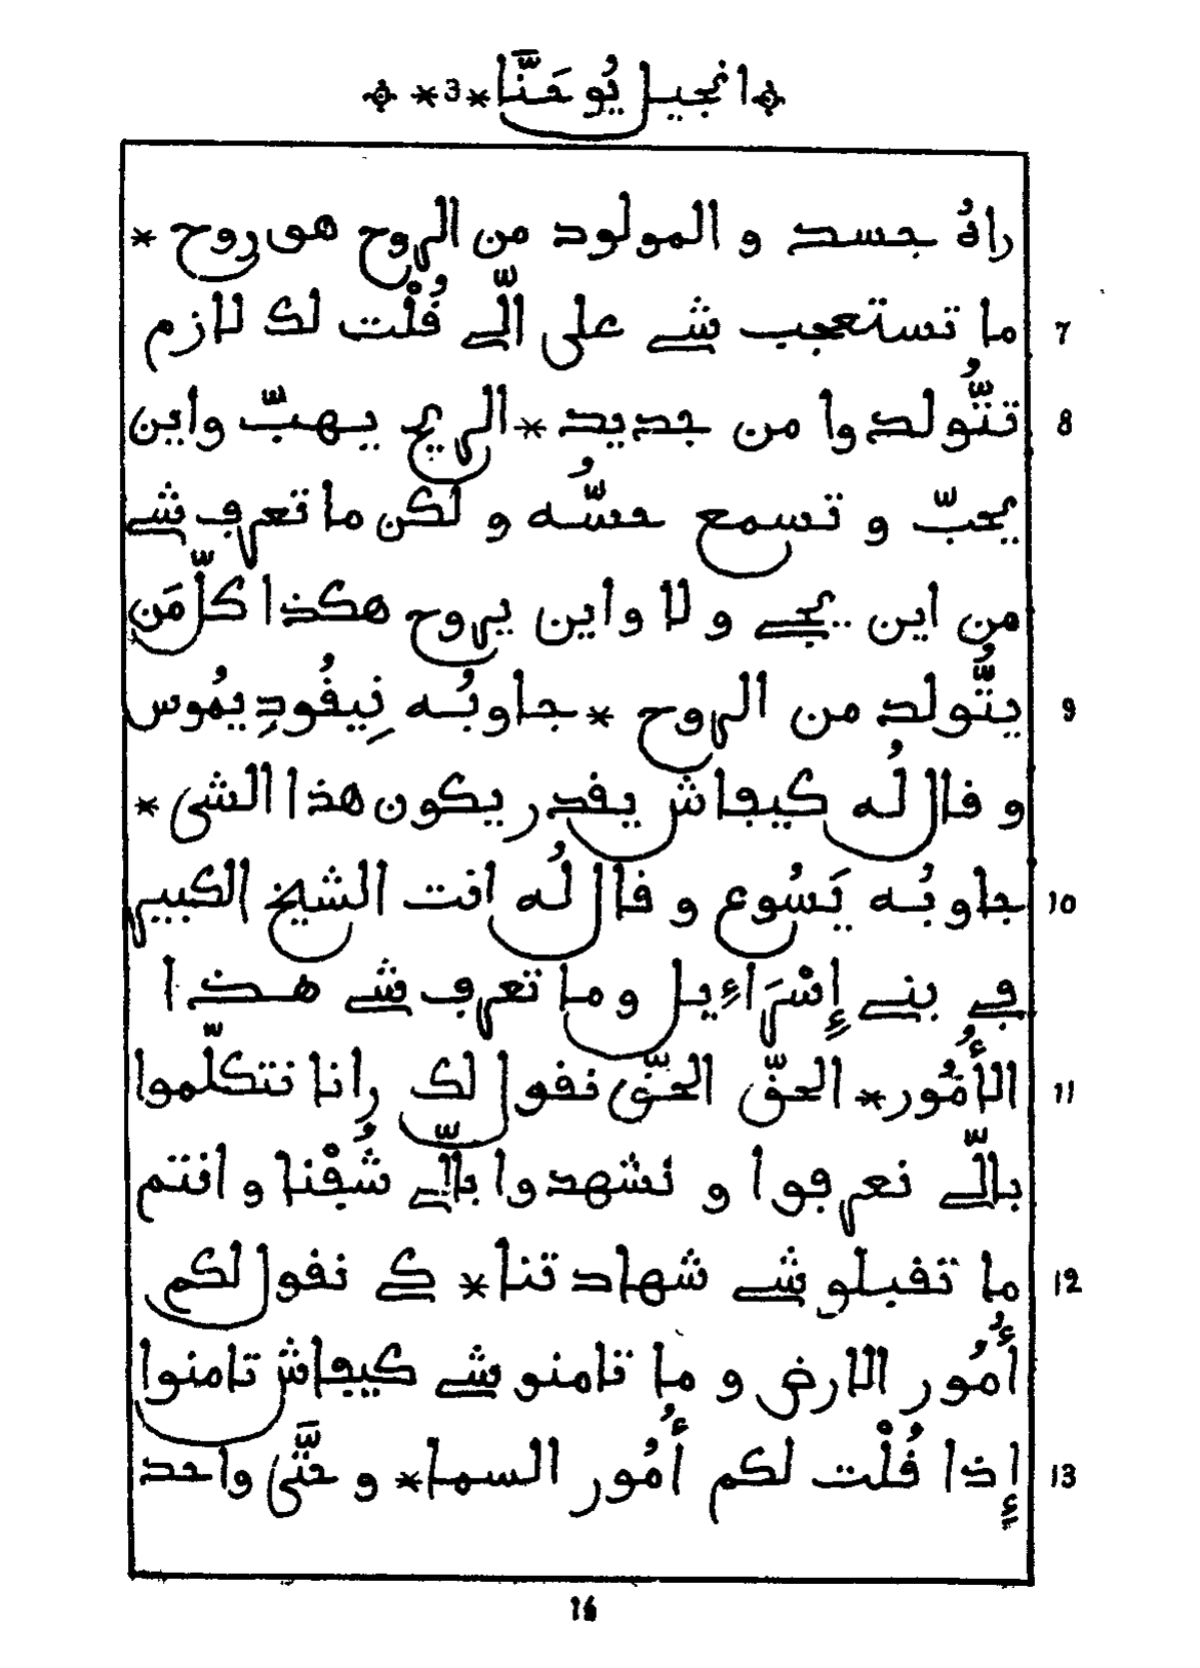 انجيل يُوحَنَّا *3*
راهُ جسد و المولود من الروح هو روح *
7 ما تستعجب شے على الّے ڧُلْت لك لازم
8 تتُّولدوا من جديد * الريح يهبّ واين
يحبّ و تسمع حسُّه و لكن ما تعرڢ شے
من اين يجے و لا واين يروح هكذا كلّ مَن
يتُّولد من الروح * 9 جاوبُه نِيڧُودِيمُوس
و ڧال لُه كيڢاش يڧدر يكون هذا الشى *
10 جاوبُه يَسُوع و ڧال لُه انت الشيخ الكبير
ڢے بنے إِسْرَاءِيل و ما تعرڢ شے هذا
11 الأُمُور * الحڧّ الحڧّ نڧول لك رانا نتكلّموا
بالّے نعرڢوا و نشهدوا بالّے شُڢْنا و انتم
12 ما تڧبلو شے شهادتنا * كے نڧول لكم
أُمُور الارض و ما تامنو شے كيڢاش تامنوا
13 إِذا ڧُلْت لكم أُمُور السماء * و حتَّى واحد
16